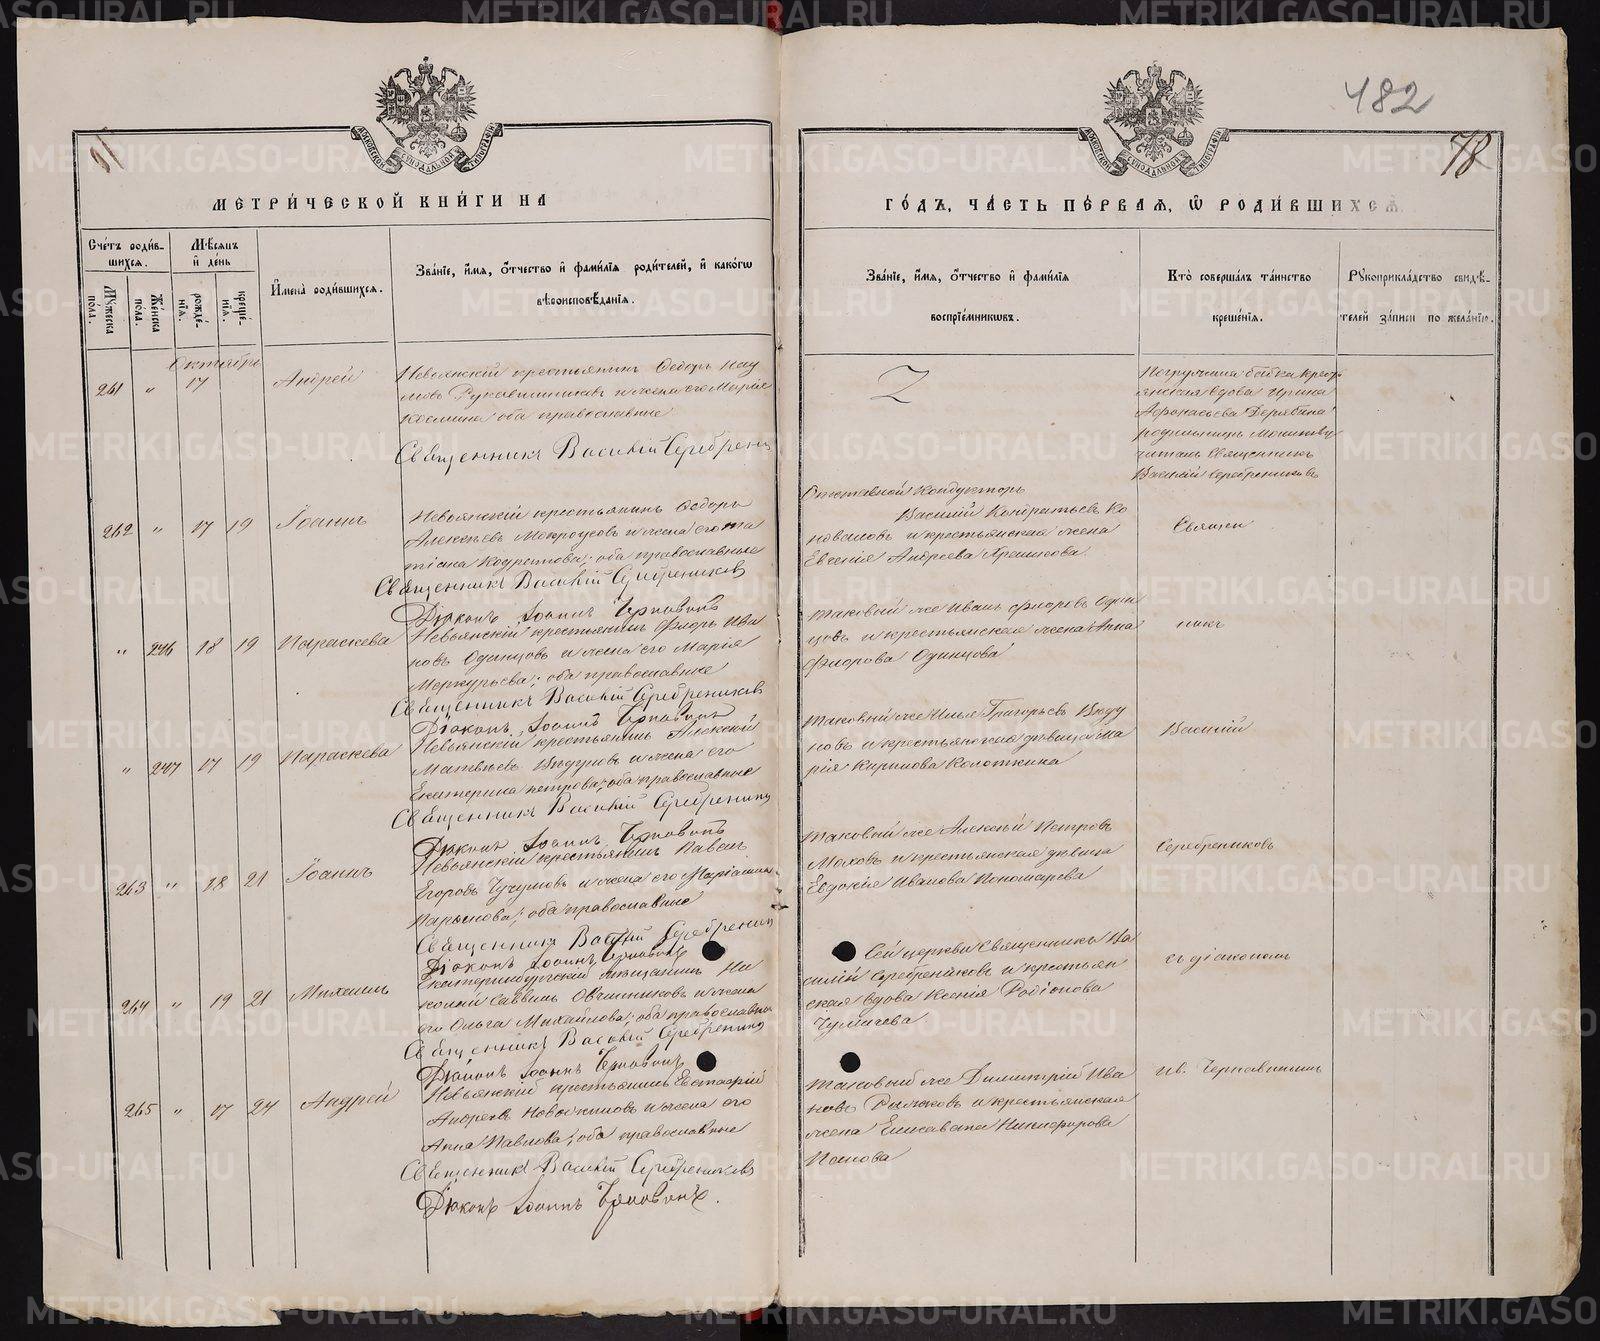 METRIKI.GASO-URAL.RU
482
78
МЕТРИ́ЧЕСКОЙ КНИ́ГИ НА
ГО́ДЪ, ЧА́СТЬ ПЕ́РВАЯ, Ѡ РОДИ́ВШИХСЯ
Сче́тъ роди́в-
шихся.
Мѣсяцъ
и́ де́нь
Мꙋжеска по́ла.
Же́нска по́ла.
рожде́нїя.
креще́нїя.
И҆мена̀ роди́вшихся.
Зва́нїе, и҆́мя, ѻ҆́тчество и҆ фами́лїя роди́телей, и҆ како́гѡ
вѣроисповѣ́данїя.
Зва́нїе, и҆́мя, ѻ҆́тчество и҆ фами́лїя
воспрїе́мникѡвъ.
Кто̀ соверша́лъ та́инство
креще́нїя.
Рꙋкоприкла́дство свидѣ́-
телей за́писи по жела́нїю.
Октябрь
261 „ 17 Андрей
Невьянскій крестьянинъ Ѳедоръ Нау
мовъ Рукавишниковъ и жена его Марія
Космина оба православные
Священникъ Василій Серебрени
Погрузила бабка крест
янская вдова Ирина
Афонасьева Дерябина
родильницѣ молитву
читалъ Священникъ
Василій Серебрениковъ
262 „ 17 19 Іоаннъ
Невьянскій крестьянинъ Ѳедоръ
Алексѣевъ Мокроусовъ и жена его Та
тіана оба православные
Священникъ Василій Серебрениковъ
Діаконъ Іоаннъ Чернавинъ
Отставной Кондукторъ
Василій Кондратьевъ Ко
новаловъ и крестьянская жена
Евгенія Андреева
Священ
„ 246 18 19 Параскева
Невьянскій крестьянинъ Флоръ Ива
новъ Одинцовъ и жена его Марія
Меркурьева; оба православные
Священникъ Василій Серебрениковъ
Діаконъ Іоаннъ Чернавинъ
Таковый же Иванъ Флоровъ Один
цовъ и крестьянская жена Анна
Флорова Одинцова
никъ
„ 247 17 19 Параскева
Невьянскій крестьянинъ Алексѣй
Матвѣевъ и жена его
Екатерина Петрова; оба православные
Священникъ Василій Серебрени
Діаконъ Іоаннъ Чернавинъ
Таковый же Илья Григорьевъ
новъ и крестьянская дѣвица Ма
рія Кирилова Колоткина
Василій
263 „ 18 21 Іоаннъ
Невьянскій крестьянинъ Павелъ
Егоровъ и жена его Маріанна
оба православные
Священникъ Василій Серебрени
Діаконъ Іоаннъ Чернавинъ
Таковый же Алексѣй Петровъ
Маховъ и крестьянская дѣвица
Евдокія Иванова Пономарева
Серебрениковъ
264 „ 19 21 Михаилъ
Екатеринбургскій мѣщанинъ Ни
колай Саввинъ Овчинниковъ и жена
его Ольга Михайлова; оба православны
Священникъ Василій Серебрени
Діаконъ Іоаннъ Чернавинъ
Сей церкви Священникъ Ва
силій Серебрениковъ и крестьян
ская вдова Ксенія Родіонова
съ діакономъ
265 „ 17 24 Андрей
Невьянскій крестьянинъ Евстафій
Андреевъ и жена его
Анна Павлова; оба православные
Священникъ Василій Серебрениковъ
Діаконъ Іоаннъ Чернавинъ.
Таковый же Димитрій Ива
новъ и крестьянская
жена Елисавета Никифорова
Попова
Ив. Чернавинымъ